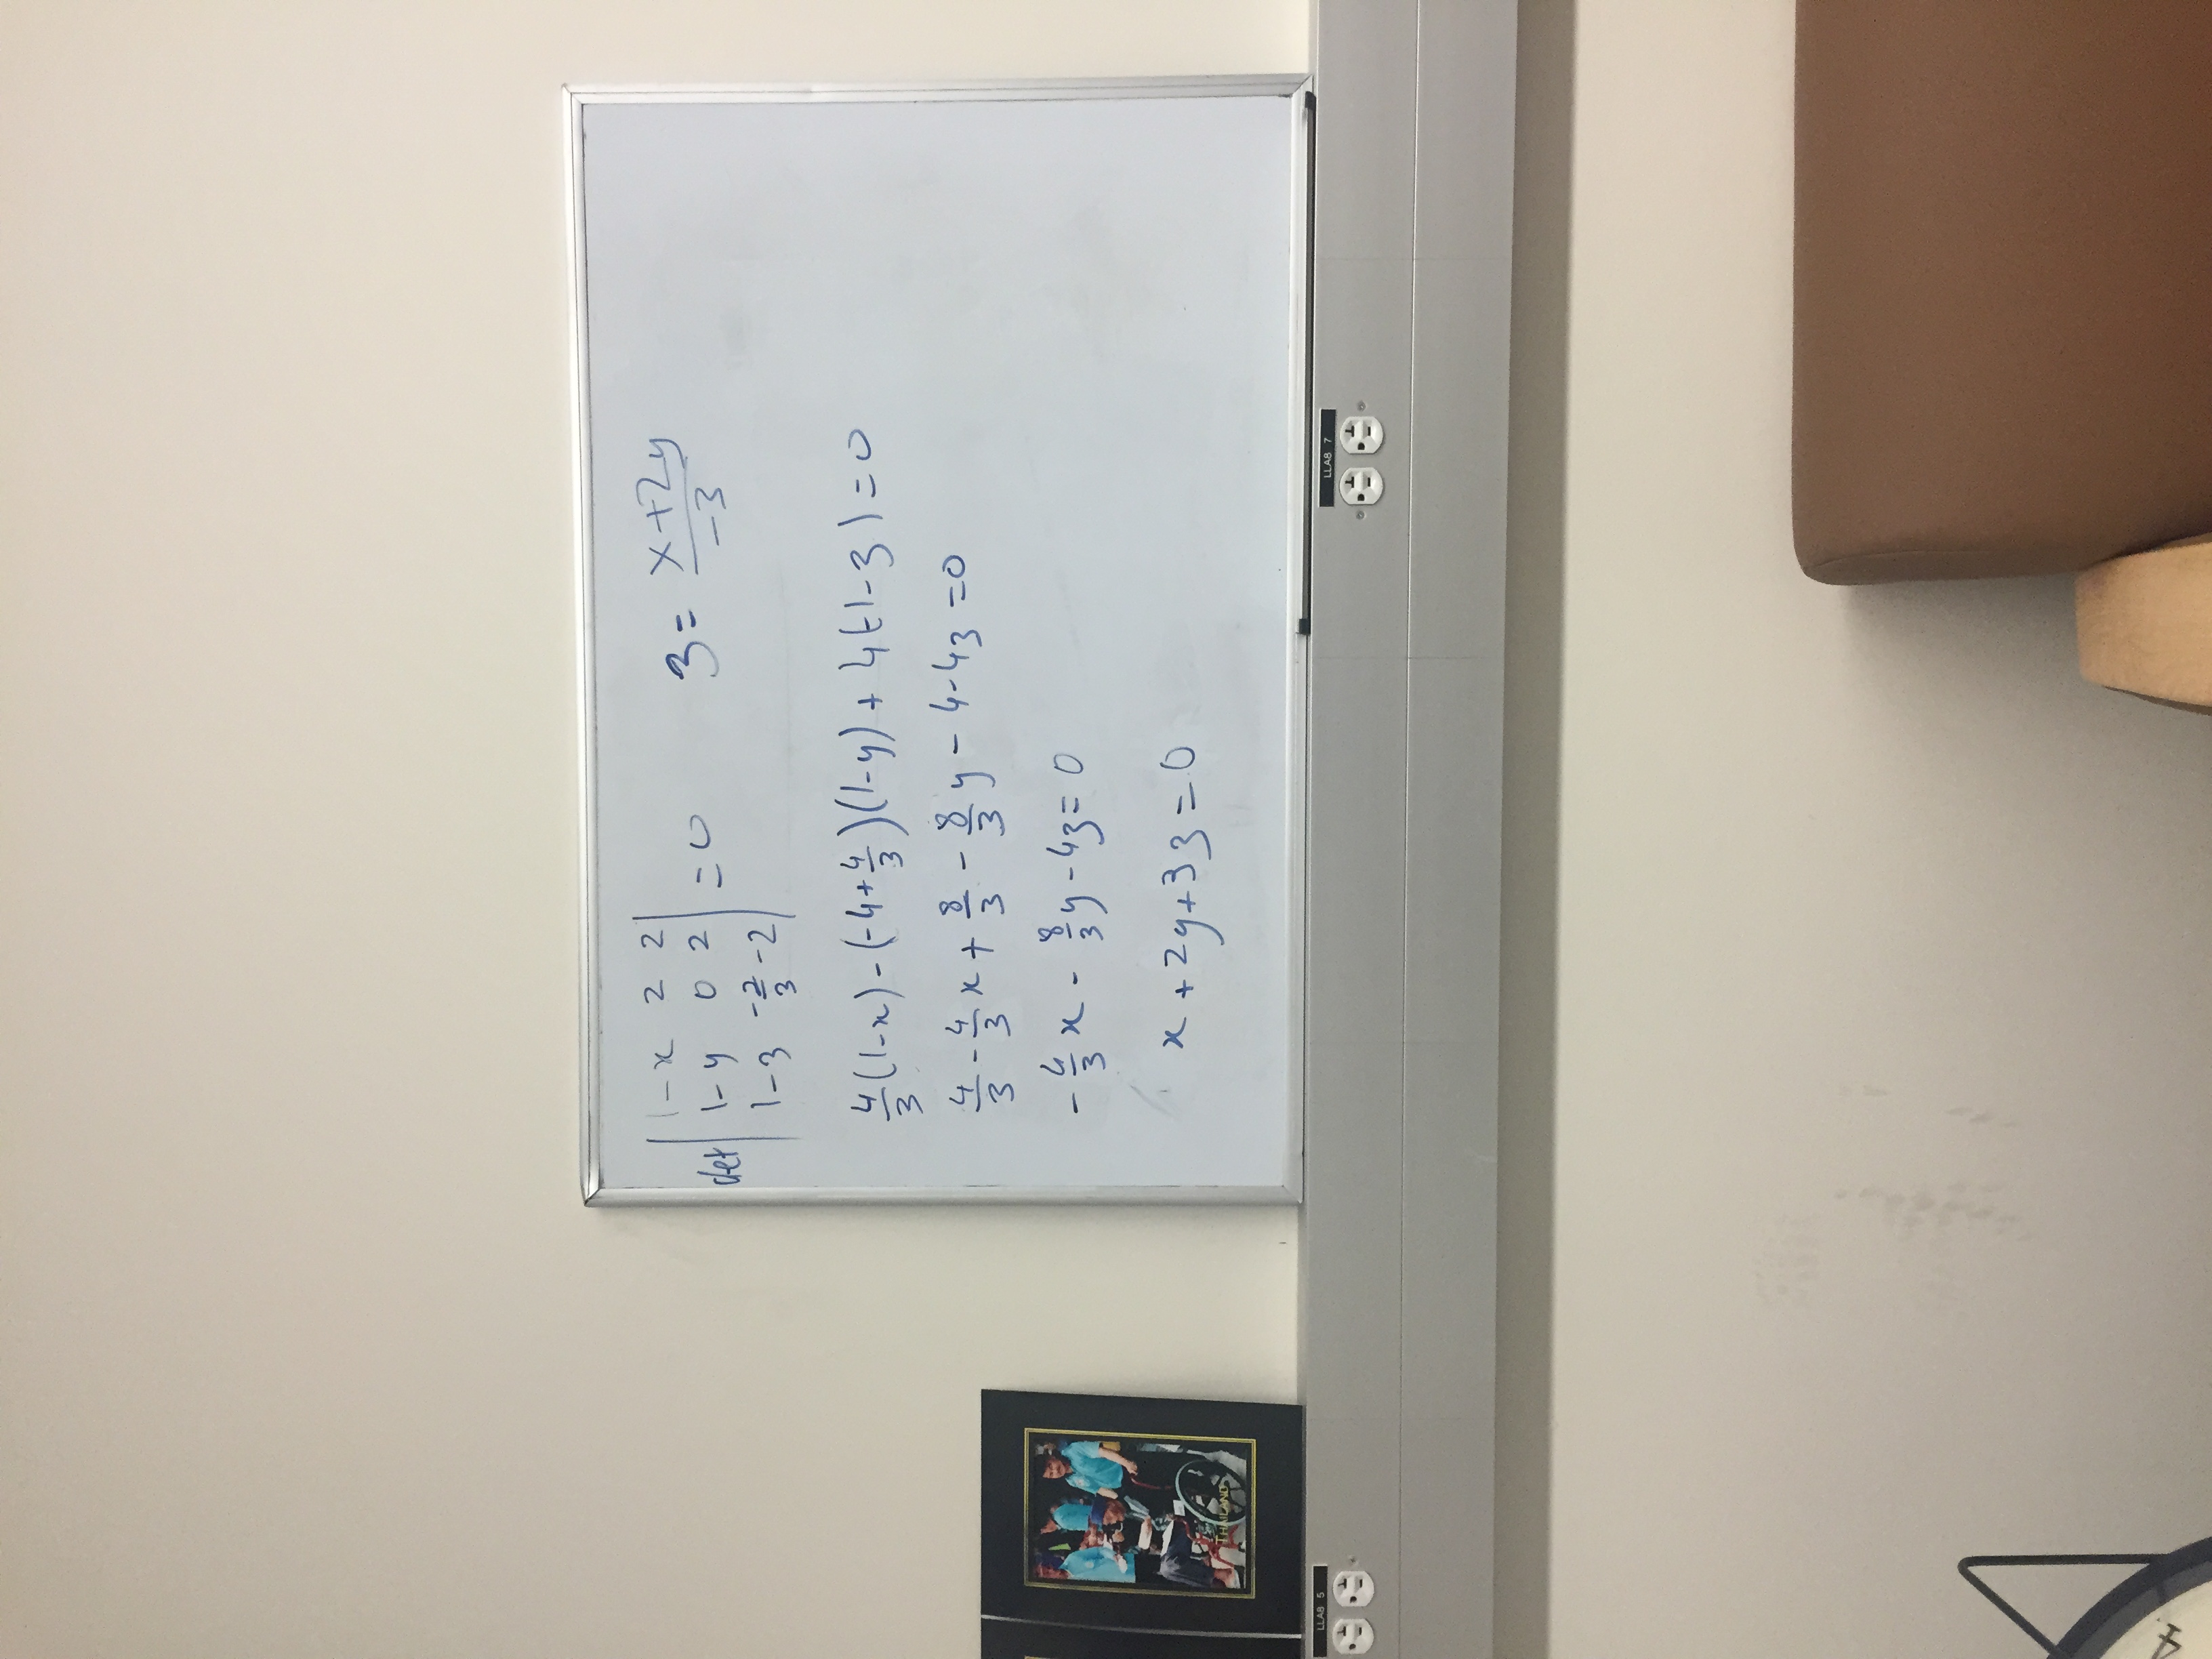 det | 1-x 2 2 |
| 1-y 0 2 | = 0
| 1-z -2/3 -2 |
z = (x+2y)/-3
4/3(1-x) - (-4+4/3)(1-y) + 4(-1-z) = 0
4/3 - 4/3 x + 8/3 - 8/3 y - 4-4z = 0
- 4/3 x - 8/3 y - 4z = 0
x + 2y + 3z = 0
THAILAND
LLAB 5
LLAB 7
4